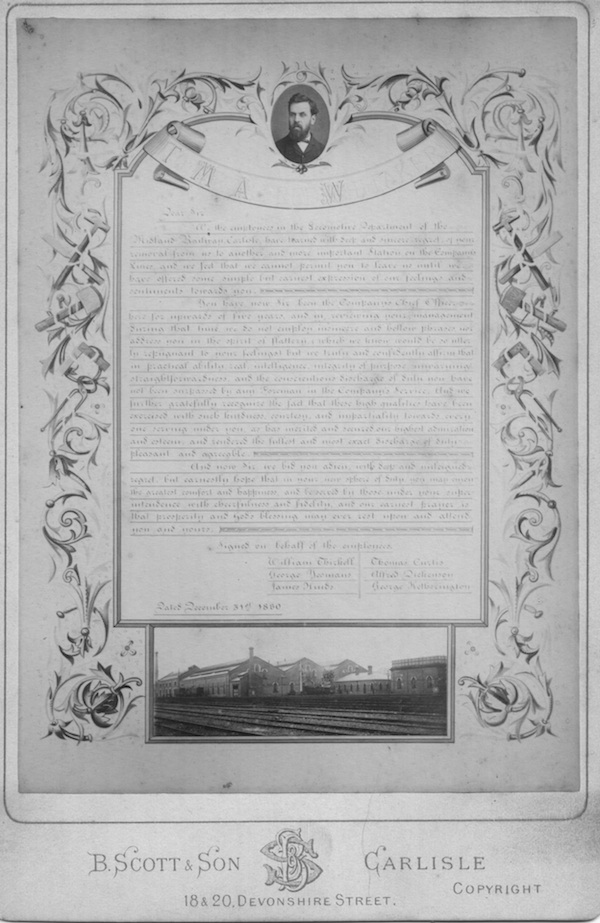 Dear Sir
We, the employees in the Locomotive Department of the
Midland Railway, Carlisle, have learned with deep and sincere regret of your
removal from us to another and more important Station on the Company's
Lines, and we feel that we cannot permit you to leave us until we
have offered some simple but earnest expression of our feelings and
sentiments towards you.
You have now Sir been the Company's Chief Officer
here for upwards of five years, and in reviewing your management
during that time we do not employ insincere and hollow phrases nor
address you in the spirit of flattery, (which we know would be so utter-
ly repugnant to your feelings) but we truly and confidently affirm that
in practical ability, real intelligence, integrity of purpose, unvarying
straightforwardness, and the conscientious discharge of duty you have
not been surpassed by any Foreman in the Company's Service. And we
further gratefully recognize the fact that these high qualities have been
exercised with such kindness, courtesy, and impartiality towards every
one serving under you, as has merited and secured our highest admiration
and esteem, and rendered the fullest and most exact discharge of duty
pleasant and agreeable
And now Sir, we bid you adieu, with deep and unfeigned
regret, but earnestly hope that in your new sphere of duty you may enjoy
the greatest comfort and happiness, and be served by those under your super-
intendence with cheerfulness and fidelity, and our earnest prayer is
that prosperity and God's blessing may ever rest upon and attend
you and yours.
Signed on behalf of the employees
William Thirkell Thomas Curtis
George Yeomans Alfred Dickenson
James Hinds George Hetherington
Dated December 31st 1880
B. SCOTT & SON
CARLISLE
18 & 20, DEVONSHIRE STREET.
COPYRIGHT